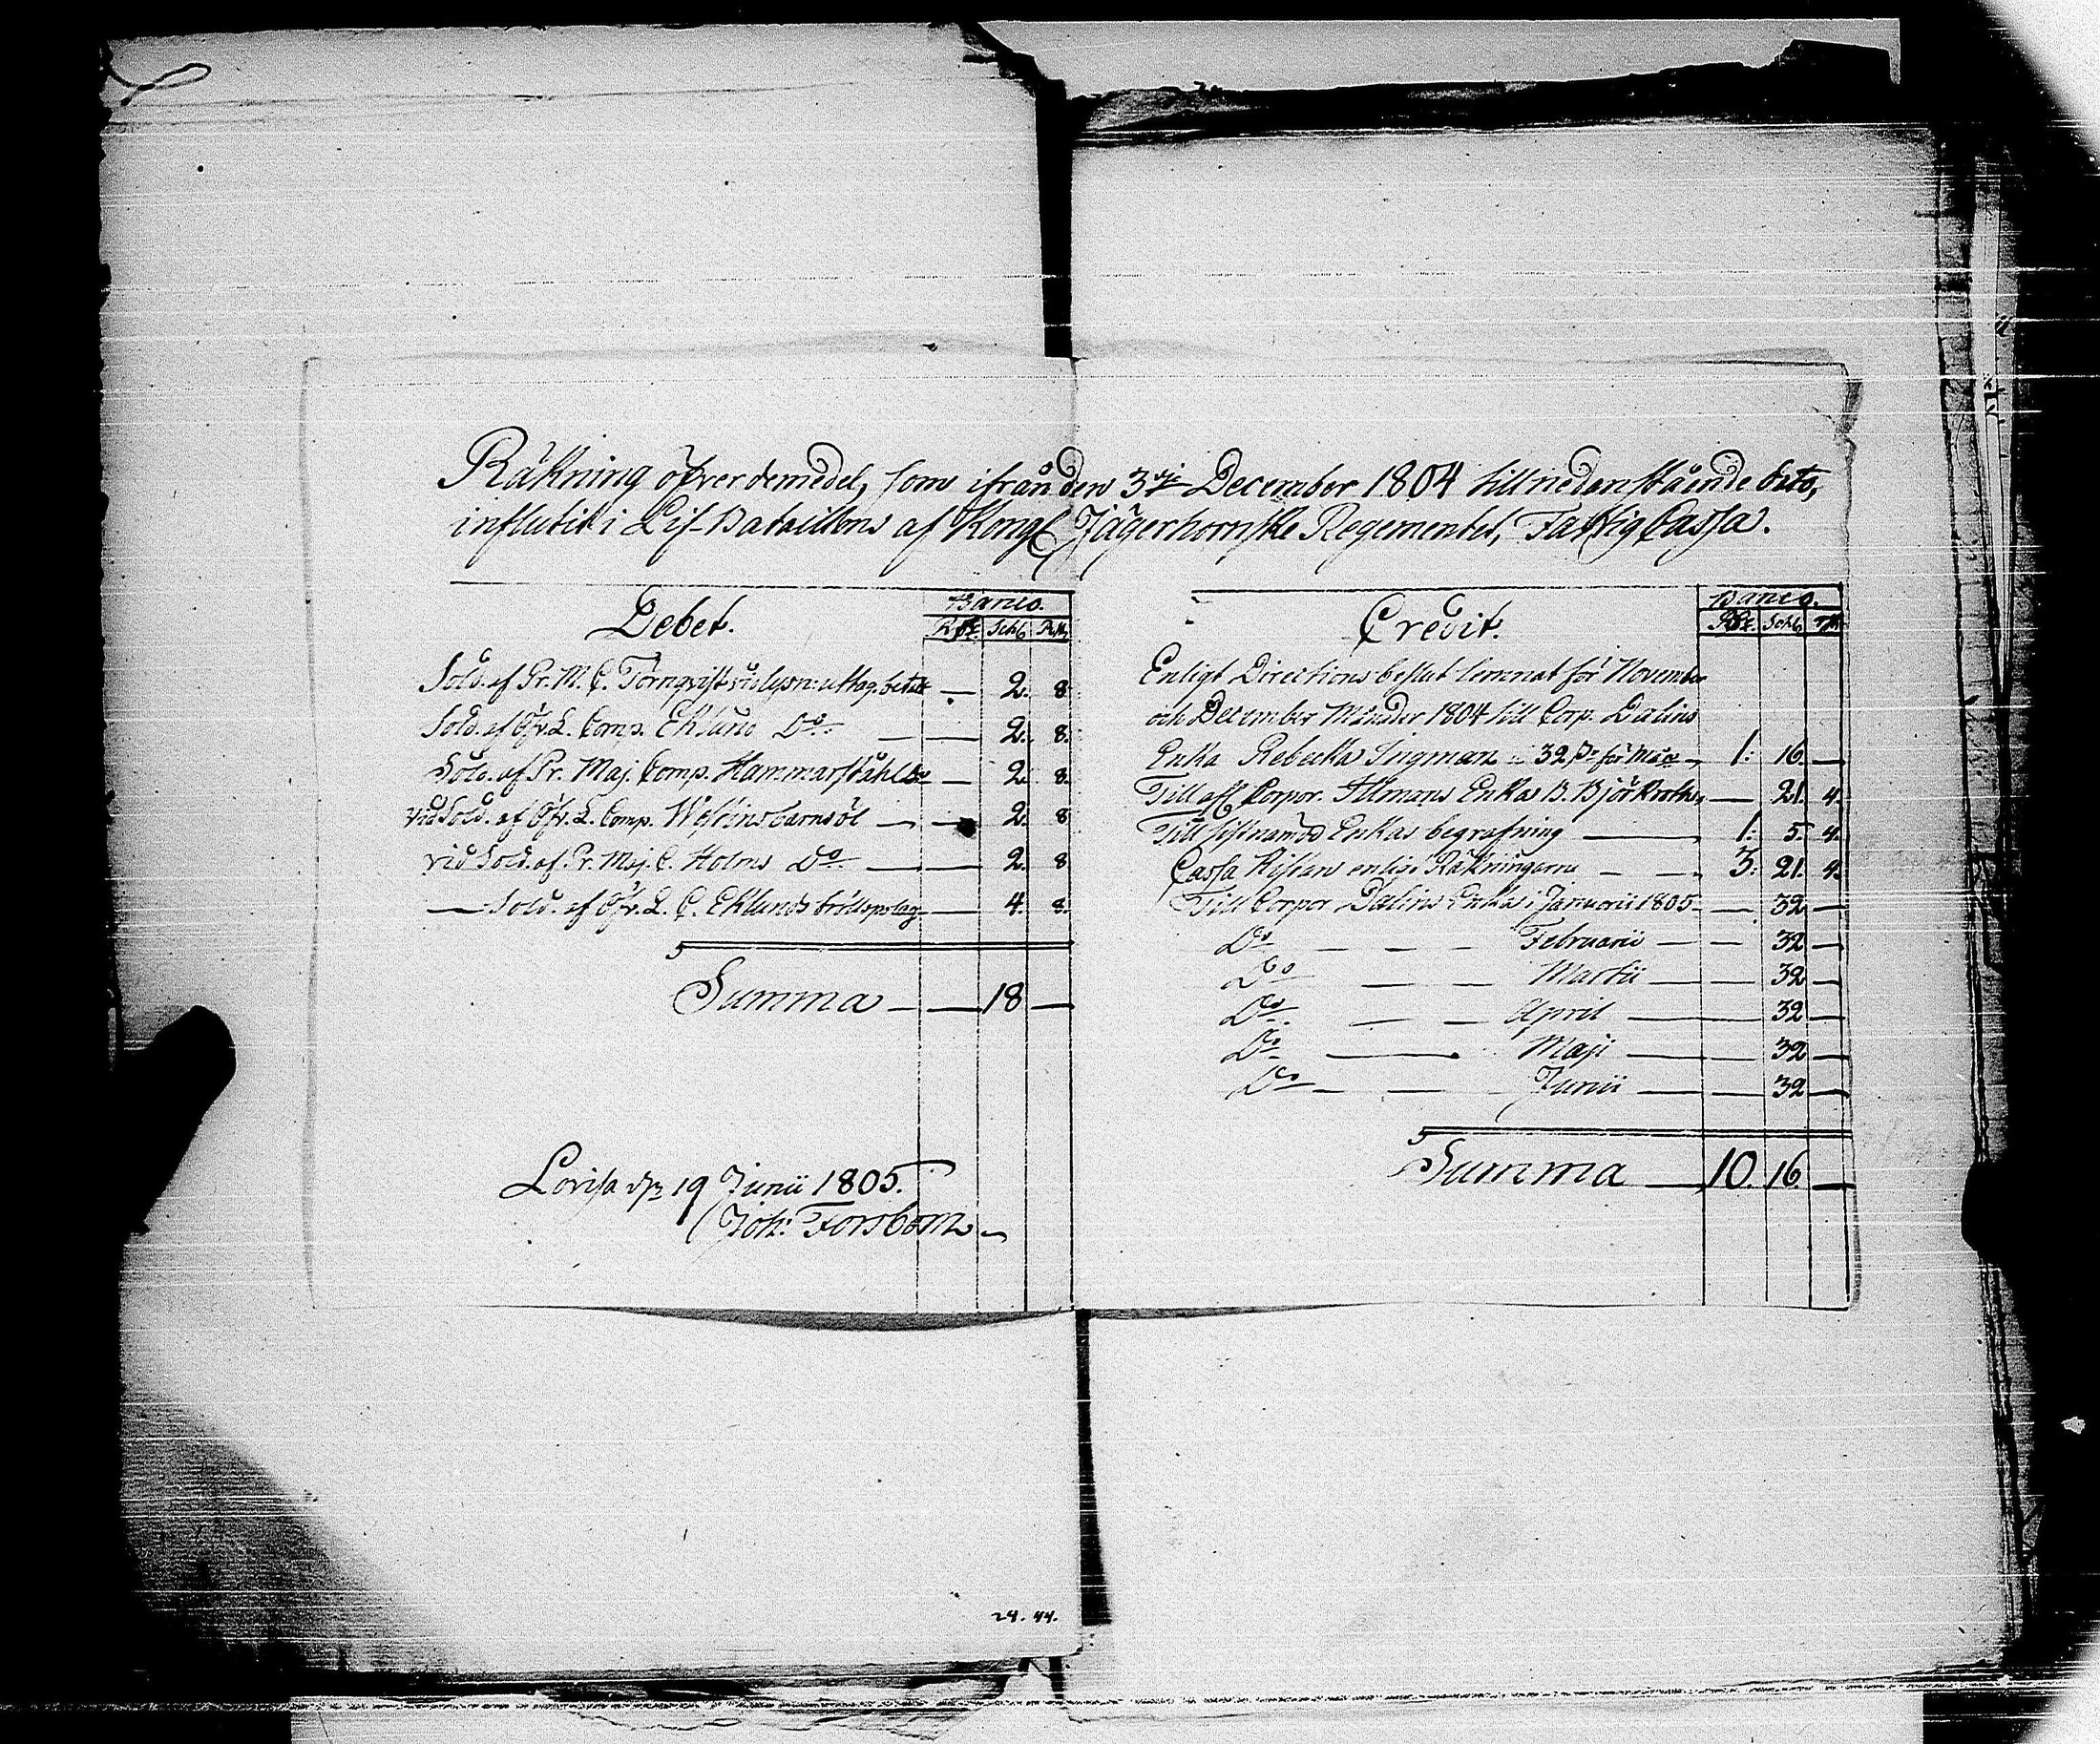 Räkning öfver de medel, som ifrån den 3dje December 1804 till nedenstående dato,
influtit i Lif-Bataillons af Kongl Jägerhornske Regementet, Fattig Cassa.
Debet.
Banco.
Rdr. Schl. R.st.
Sold. af Pr. M. C. Törnqvist lysn: uttag. betalt — 2. 8.
Sold. af Öfv. L. Comp. Eklund Do — — 2. 8.
Sold. af Pr. Maj. Comp. Hammarståhl Do — 2. 8.
vid Sold. af Öfv. L. Comp. Westins barnsöl — — 2. 8
vid Sold. af Pr. Maj. C. Holms Do — — 2. 8
— Sold. af Öfv. L. C. Eklunds bröllopslag — 4. 8.
Summa — — 18 —
Lovisa den 19 Junii 1805.
Joh: Forsbom
Credit.
Banco.
Rdr. Schl. rst
Enligt Directions beslut lemnat för November
och December Månader 1804 till Corp. Dalins
Enka Rebecka Ingman 32 s. för Mån — 1: 16. —
Till Corpor. Illmans Enka B. Björkroth — 21. 4.
Till sistnamnd Enkas begrafning — 1: 5. 4.
Cassa Kistan enligt Räkningarne — — 3: 21. 4.
Till Corpor Dalins Enka i Januarii 1805 — — 32 —
Do — — — Februarii — — 32 —
Do — — Martii — — 32 —
Do — — April — — 32 —
Do — Maji — — 32 —
Do — — Junii — — 32 —
Summa — 10. 16. —
24. 44.